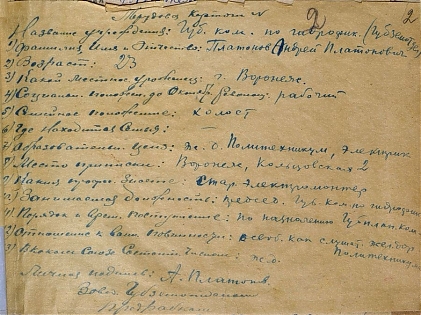 Трудовая карточка №
2
2
1) Название учреждения: Губ. ком. по гидрофик. (Губземотдел)
2) Фамилия Имя и Отчество: Платонов Андрей Платонович
2) Возраст: 23
3) Какой местности уроженец: г. Воронеж.
4) Социальн. положен. до Октяб. Революц.: рабочий
5) Семейное положение: холост
6) Где находится семья: —
7) Образовательн. ценз: ж. д. Политехникум, электрик
Место приписки: Воронеж, Кольцовская 2
Какия профес. знаете: стар. электромонтер
Занимаемая должность: Губ. ком. по гидрофикац.
Порядок и врем. поступления: по назначению
Отношение к воин. повинности: освоб. как слушат. жел. дор. Политехникума
В каком Союзе состоит членом: ж. д.
Личная подпись: А. Платонов.